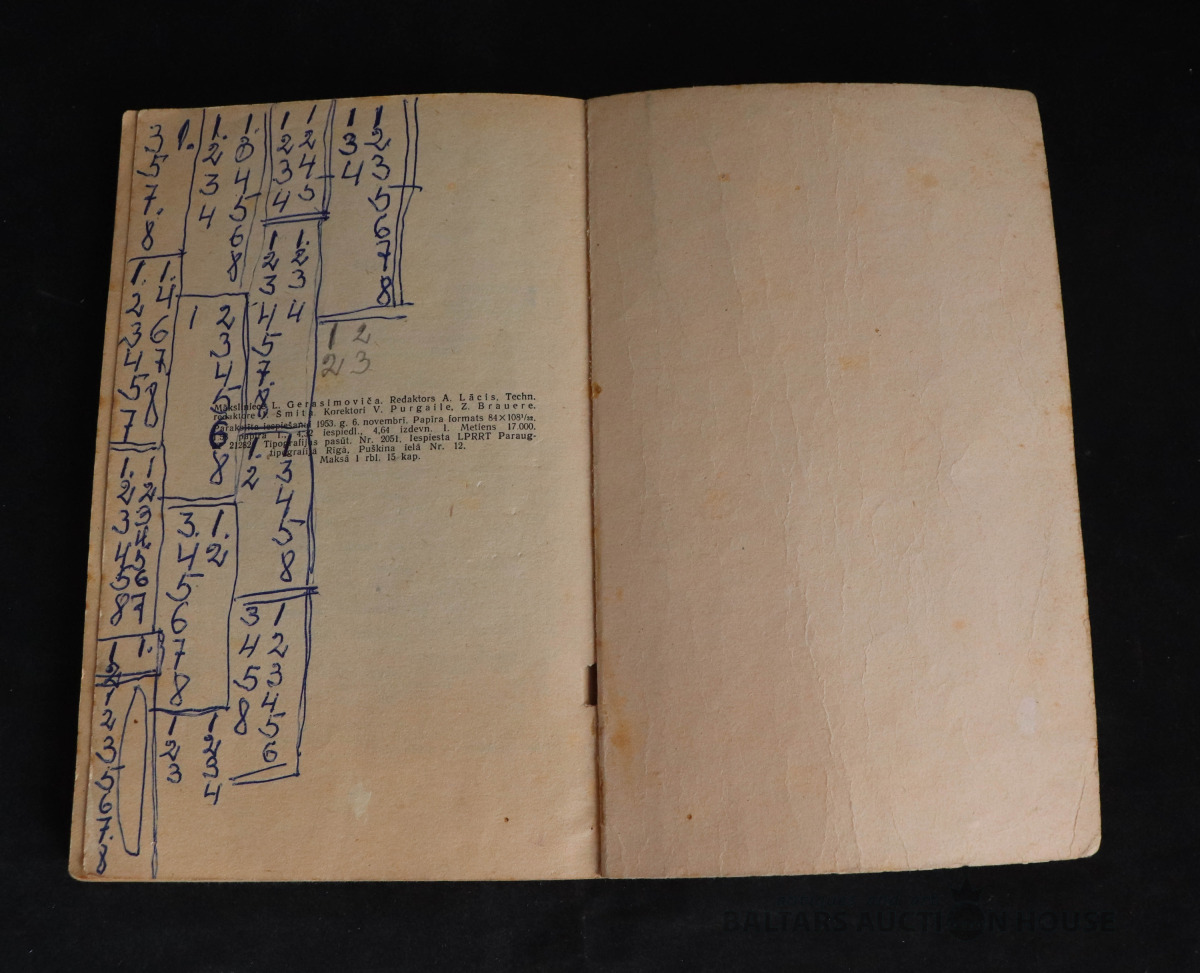 3 1.
5
7.
8
1. 1.
2 4
3 6
4 7
5 8
7
1. 1
2 2
3 3
4 4
5 5
8 6
7
1 1.
2
1
2
3
5
6
7.
8
1. 1.
2 3
3 4
4 5
6
8
1 2
3
4
5
6
8
3. 1.
4 2
5
6
7
8
1 1
2 2
3 3
4
1 1
2 2
3 4
4 5
1 1.
2 2
3 3
4 4
5
7
8.
1. 1
2 3
4
5
8
3 1
4 2
5 3
8 4
5
6
1 1
3 2
4 3
5
6
7
8
1 2
2 3
Mākslinieks L. Gerasimoviča. Redaktors A. Lācis. Techn.
Šmits. Korektori V. Purgaile, Z. Brauere.
Parakstīta iespiešanai 1953. g. 6. novembrī. Papīra formats 84×108¹/₃₂.
papīra l., 4,32 iespiedl., 4,64 izdevn. l. Metiens 17.000.
21282 Tipografijas pasūt. Nr. 2051. Iespiesta LPRRT Paraug-
tipografijā Rīgā, Puškina ielā Nr. 12.
Maksā 1 rbl. 15 kap.
BALTARS AUCTION HOUSE